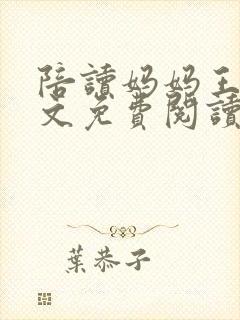 陪讀妈妈王
文免費閱讀
葉恭子